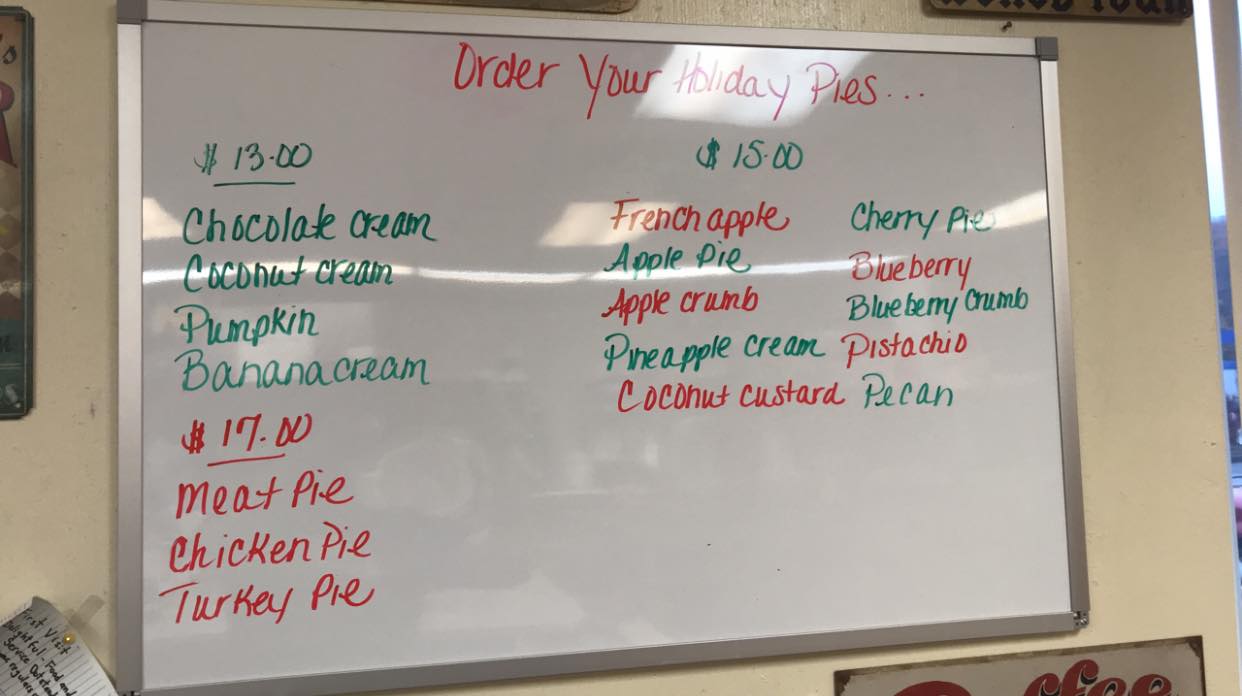 Order Your Holiday Pies...
$ 13.00
Chocolate cream
Coconut cream
Pumpkin
Banana cream
$ 17.00
Meat Pie
Chicken Pie
Turkey Pie
$ 15.00
French apple
Apple Pie
Apple crumb
Pineapple cream
Coconut custard
Cherry Pie
Blueberry
Blueberry Crumb
Pistachio
Pecan
First Visit
Delightful - Food and
Service
Coffee